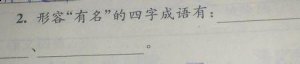 2. 形容“有名”的四字成语有：
、。